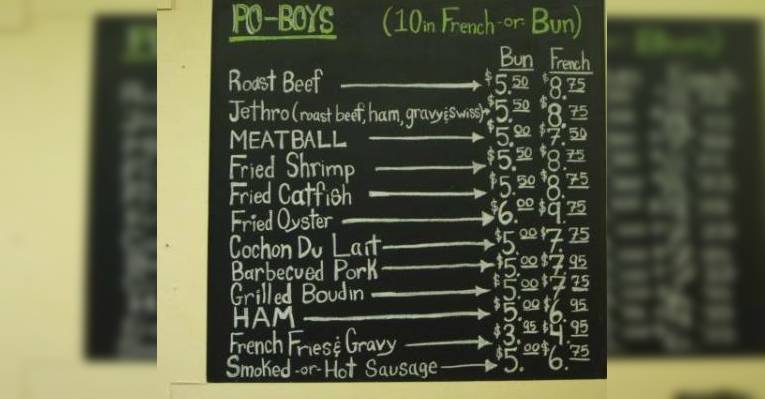 PO-BOYS (10in French -or- Bun)
Bun French
Roast Beef $5.50 $8.75
Jethro (roast beef, ham, gravy & swiss) $5.50 $8.75
MEATBALL $5.00 $7.50
Fried Shrimp $5.50 $8.75
Fried Catfish $5.50 $8.75
Fried Oyster $6.00 $9.75
Cochon Du Lait $5.00 $7.75
Barbecued Pork $5.00 $7.95
Grilled Boudin $5.00 $7.75
HAM $5.00 $6.95
French Fries & Gravy $3.95 $4.95
Smoked -or- Hot Sausage $5.00 $6.75